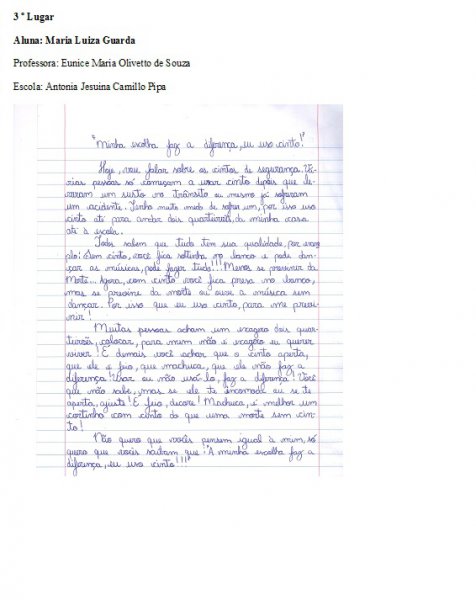 3° Lugar
Aluna: Maria Luiza Guarda
Professora: Eunice Maria Olivetto de Souza
Escola: Antonia Jesuina Camillo Pipa
"Minha escolha faz a diferença, eu uso cinto!"
Hoje, vou falar sobre os cintos de segurança. Vá-
rias pessoas só começam a usar cinto depois que le-
varam um susto no trânsito ou mesmo já sofreram
um acidente. Tenho muito medo de sofrer um, por isso uso
cinto até para andar dois quarteirões da minha casa
até à escola.
Todos sabem que tudo tem sua qualidade, por exem-
plo: Sem cinto, você fica soltinha no banco e pode dan-
çar as músicas, pode fazer tudo!!! Menos se prevenir da
Morte... Agora, com cinto você fica presa no banco,
mas se previne da morte ou ouve a música sem
dançar. Por isso que eu uso cinto, para me preve-
nir!
Muitas pessoas acham um exagero dois quar-
teirões, colocar, para mim não é exagero eu querer
viver! É demais você achar que o cinto aperta,
que ele é feio, que machuca, que ele não faz a
diferença! Usar ou não usá-lo, faz a diferença! Você
que não sabe, mas se ele te incomoda ou se te
aperta, ajuste! É feio, decore! Machuca, é melhor um
cortinho com cinto do que uma morte sem cin-
to!
Não quero que vocês pensem igual à mim, só
quero que vocês saibam que: "A minha escolha faz a
diferença, eu uso cinto!!!"